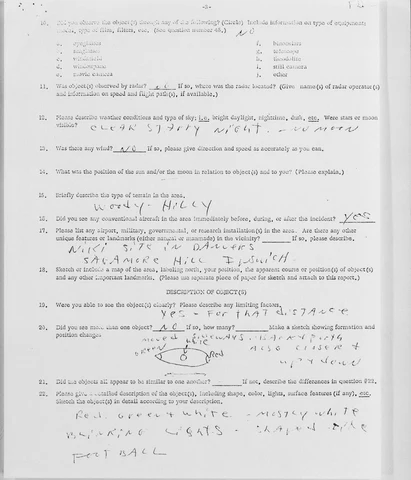 -3-
10. Did you observe the object(s) through any of the following? (Circle) Include information on type of equipment,
type of film, filters, etc. (See question number 48.) NO
a. eyeglasses f. binoculars
b. sunglasses g. telescope
c. windshield h. theodolite
d. i. still camera
e. movie camera j. other
11. Was object(s) observed by radar? NO If so, where was the radar located? (Give name(s) of radar operator(s)
and information on speed and flight path(s), if available.)
12. Please describe weather conditions and type of sky; i.e. bright daylight, nighttime, dusk, etc. Were stars or moon
visible? CLEAR STARRY NIGHT - NO MOON
13. Was there any wind? NO If so, please give direction and speed as accurately as you can.
14. What was the position of the sun and/or the moon in relation to object(s) and to you? (Please explain.)
15. Briefly describe the type of terrain in the area.
WOODY - HILLY
16. Did you see any conventional aircraft in the area immediately before, during, or after the incident? YES
17. Please list any airport, military, governmental, or research installation(s) in the area. Are there any other
unique features or landmarks (either natural or manmade) in the vicinity? If so, please describe.
NIKI SITE IN DANVERS
SAGAMORE HILL IPSWICH
18. Sketch or include a map of the area, labeling north, your position, the apparent course or position(s) of object(s)
and any other important landmarks. (Please use separate piece of paper for sketch and attach to this report.)
DESCRIPTION OF OBJECT(S)
19. Were you able to see the object(s) clearly? Please describe any limiting factors.
YES - FOR THAT DISTANCE
20. Did you see more than one object? NO If so, how many? Make a sketch showing formation and
position changes moved SIDEWAYS
GREEN white Red also closer &
up & down
21. Did the objects all appear to be similar to one another? If not, describe the differences in question #22.
22. Please give detailed description of the object(s), including shape, color, lights, surface features (if any), etc.
Sketch the object(s) in detail according to your description.
Red, Green & white - mostly white
BLINKING LIGHTS - shaped like
FOOTBALL